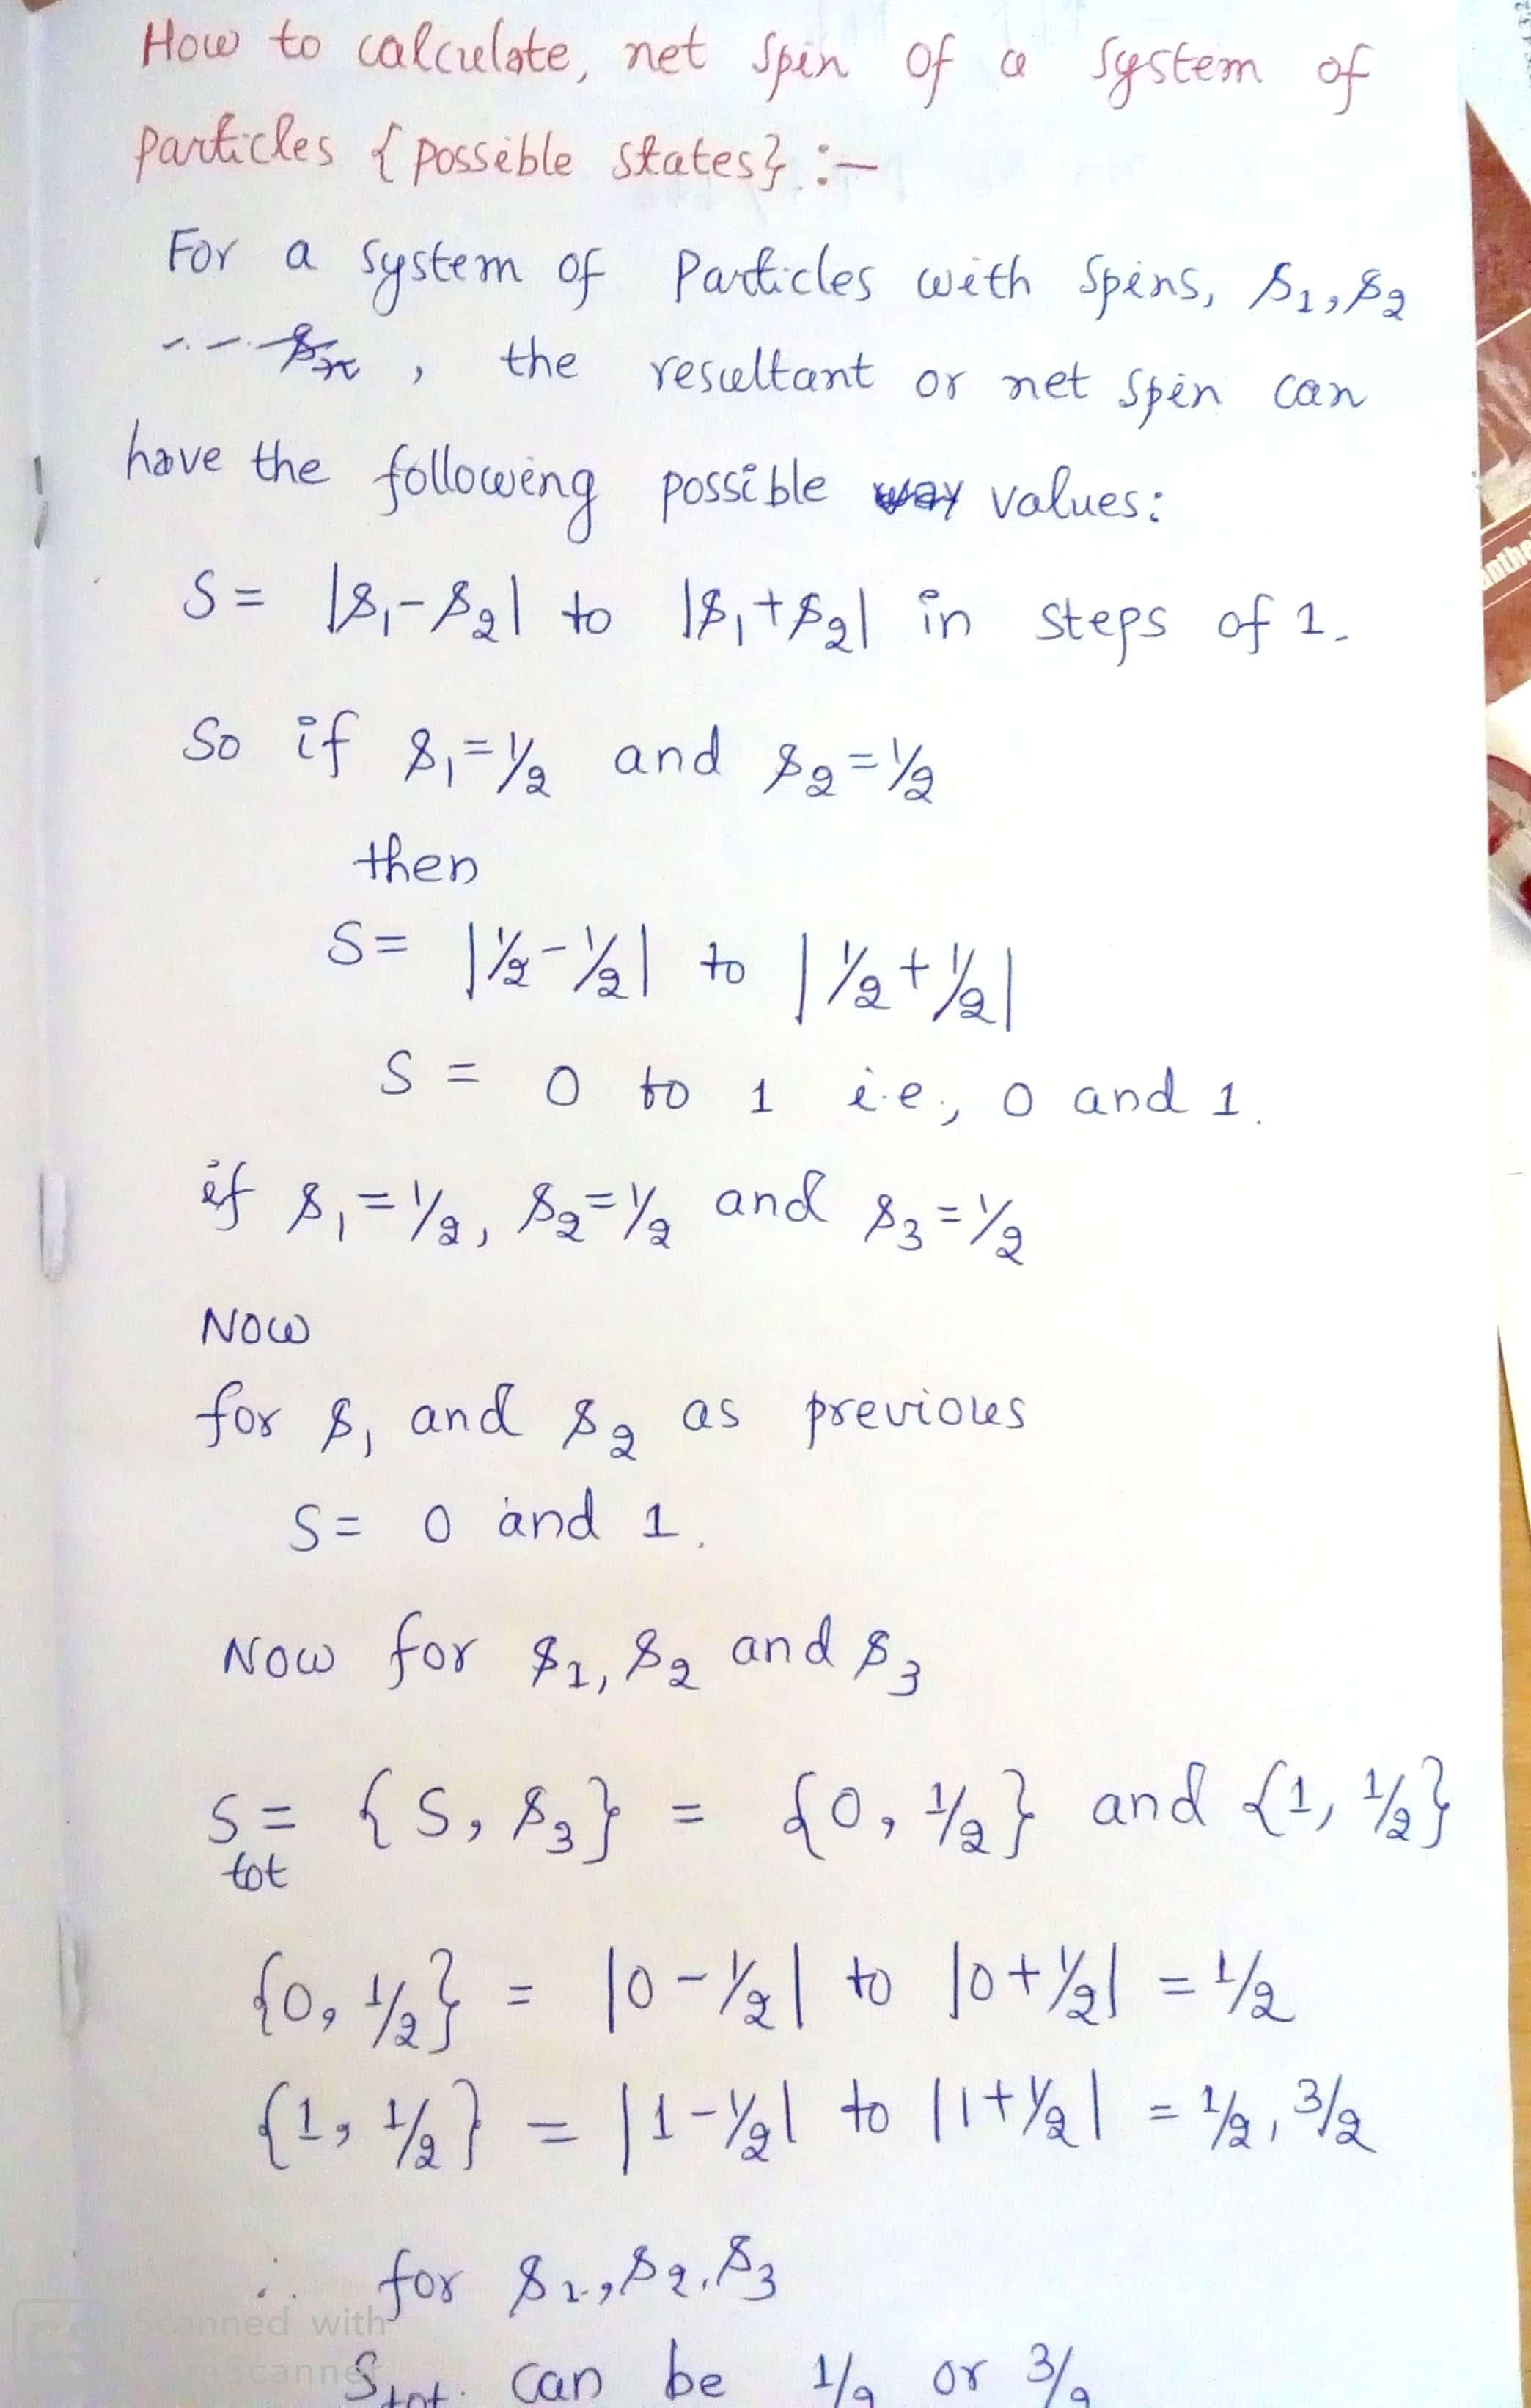 How to calculate, net spin of a system of
particles { possible states} :-
For a system of Particles with spins, s1, s2
-.-. sn , the resultant or net spin can
have the following possible way values:
S = |s1-s2| to |s1+s2| in steps of 1.
So if s1=1/2 and s2=1/2
then
S= |1/2-1/2| to |1/2+1/2|
S = 0 to 1 i.e., 0 and 1.
if s1=1/2, s2=1/2 and s3=1/2
Now
for s1 and s2 as previous
S= 0 and 1.
Now for s1, s2 and s3
S = {S, s3} = {0, 1/2} and {1, 1/2}
tot
{0, 1/2} = |0-1/2| to |0+1/2| = 1/2
{1, 1/2} = |1-1/2| to |1+1/2| = 1/2, 3/2
∴ for s1, s2, s3
Stot. can be 1/2 or 3/2
CS
Scanned with
CamScanner